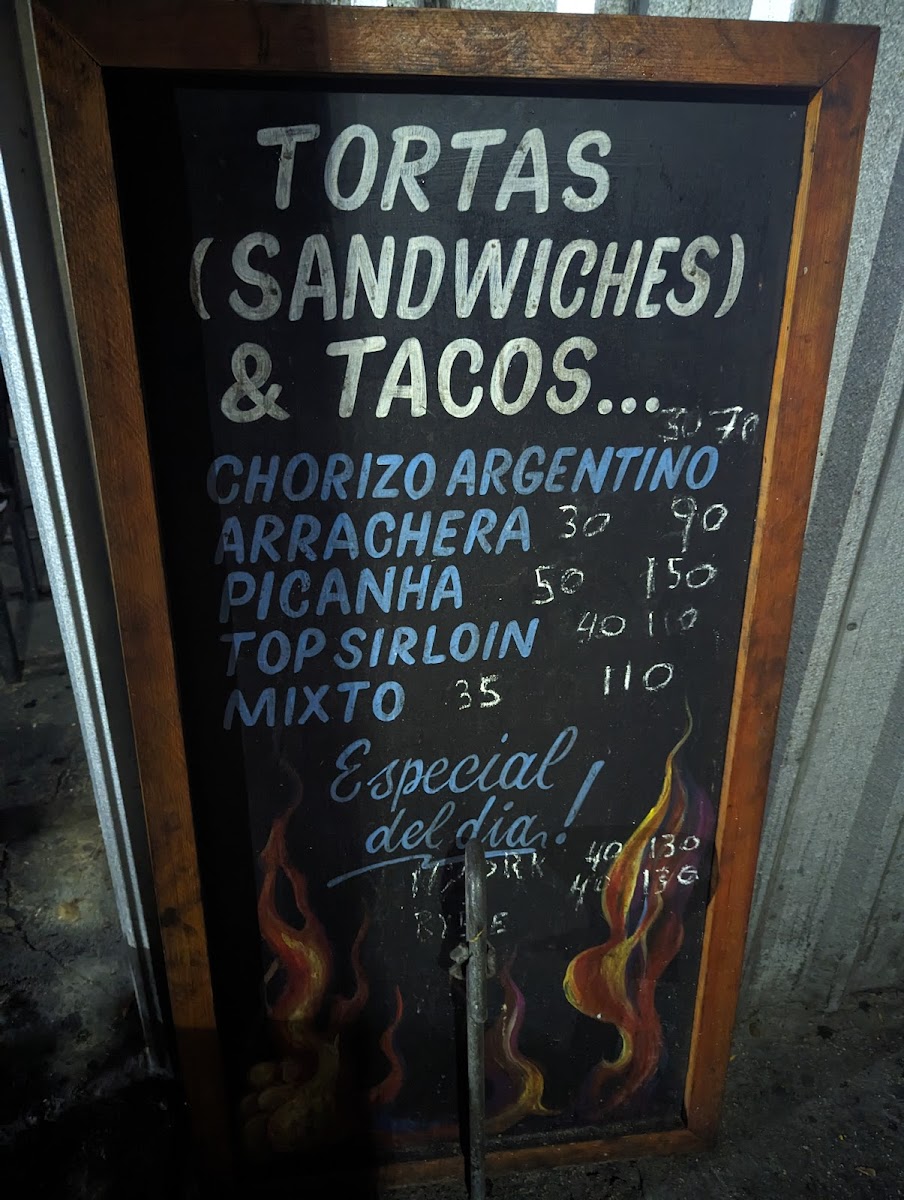 TORTAS
(SANDWICHES)
& TACOS...
30 70
CHORIZO ARGENTINO
ARRACHERA 30 90
PICANHA 50 150
TOP SIRLOIN 40 110
MIXTO 35 110
Especial
del día!
40 130
40 130